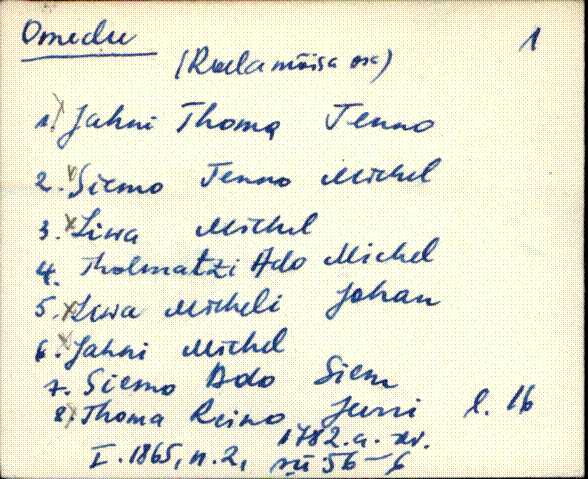 Omedu 1
(Ruela mõisa osa)
1. Jahni Thoma Jenno
2. Siemo Jenno Michel
3. Liwa Michel
4. Tholmatzi Ado Michel
5. Liwa Micheli Johan
6. Jahni Michel
7. Siemo Ado Siem
8. Thoma Reino Jurri l. 16
1782. a. rev.
I. 1865, n. 2, sü 56-6